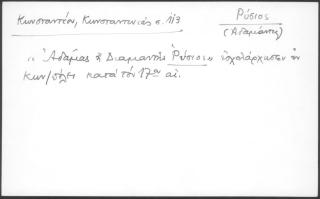 Κωνσταντίου, Κωνσταντινιάς σ. 113
Ρύσιος
(Αδαμάντιος)
"Αδαμίας ἢ Διαμαντῆς Ρύσιος" ἐσχολάρχησεν ἐν
Κων/πόλει κατά τόν 17ον αἰ.